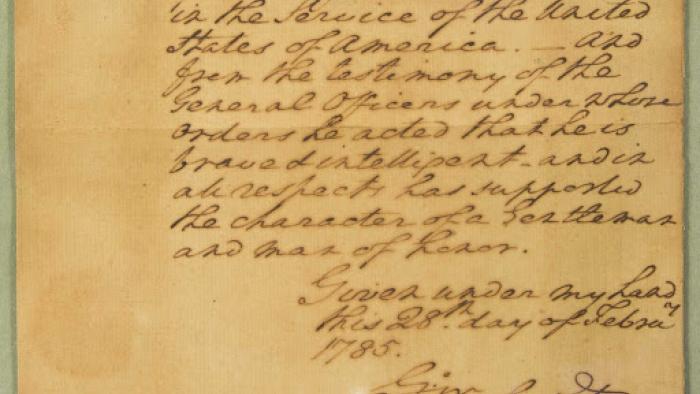 in the Service of the United
States of America. — And
from the testimony of the
General Officers under whose
orders he acted that he is
brave & intelligent - and in
all respects has supported
the character of a Gentleman
and man of honor.
Given under my hand
this 28th day of Febru^ry
1785.